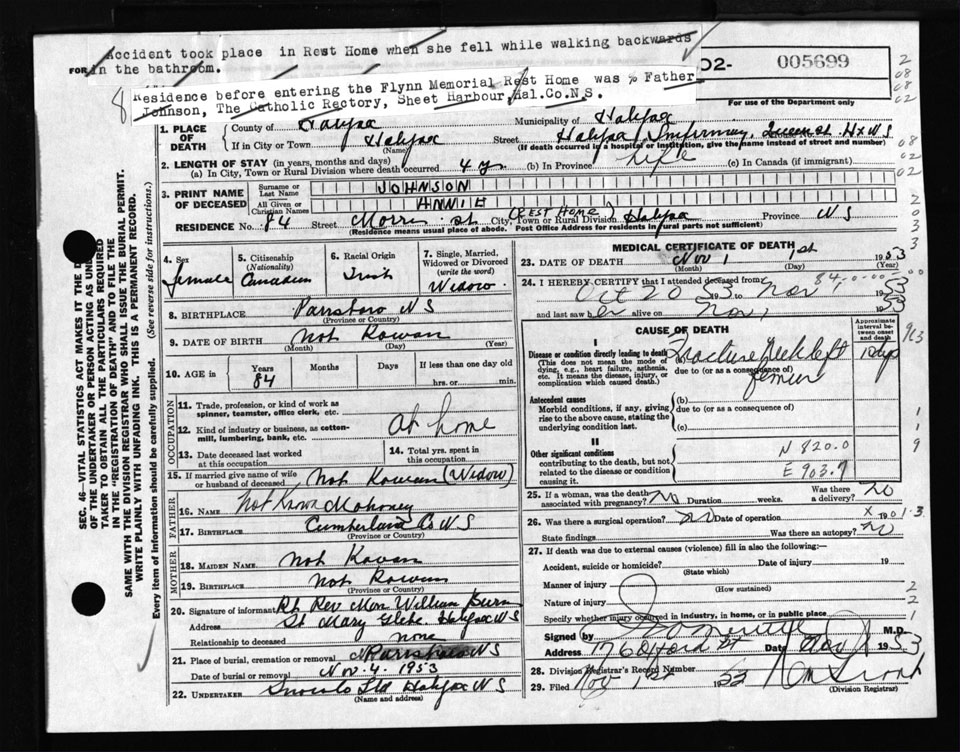 Accident took place in Rest Home when she fell while walking backwards
FOR in the bathroom.
02- 005699
Residence before entering the Flynn Memorial Rest Home was % Father
Johnson, The Catholic Rectory, Sheet Harbour, Hal.Co.N.S.
For use of the Department only
1. PLACE OF DEATH
County of Halifax Municipality of Halifax
If in City or Town Halifax (Name) Street Halifax Infirmary, Queen st. Hx N S
(If death occurred in a hospital or institution, give the name instead of street and number)
2. LENGTH OF STAY (in years, months and days)
(a) In City, Town or Rural Division where death occurred 4 y. (b) In Province life (c) In Canada (if immigrant)
3. PRINT NAME OF DECEASED
Surname or Last Name JOHNSON
All Given or Christian Names ANNIE
RESIDENCE No. 84 Street Morris st (REST HOME) City, Town or Rural Division Halifax Province N S
(Residence means usual place of abode. Post Office Address for residents in rural parts not sufficient)
4. Sex female
5. Citizenship (Nationality) Canadian
6. Racial Origin Irish
7. Single, Married, Widowed or Divorced (write the word) Widow
8. BIRTHPLACE Parrsboro N S
(Province or Country)
9. DATE OF BIRTH Not Known
(Month) (Day) (Year)
10. AGE in Years 84 Months Days If less than one day old hrs. or min.
OCCUPATION
11. Trade, profession, or kind of work as spinner, teamster, office clerk, etc.
12. Kind of industry or business, as cotton-mill, lumbering, bank, etc. At home
13. Date deceased last worked at this occupation
14. Total yrs. spent in this occupation
15. If married give name of wife or husband of deceased Not Known (Widow)
FATHER
16. NAME Not Known Mahoney
17. BIRTHPLACE Cumberland Co N S
(Province or Country)
MOTHER
18. MAIDEN NAME Not Known
19. BIRTHPLACE Not Known
(Province or Country)
20. Signature of informant Rt Rev Mon William Burn
Address St Mary Glebe. Halifax N S
Relationship to deceased none
21. Place of burial, cremation or removal Parrsboro N S
Date of burial or removal Nov. 4. 1953
22. UNDERTAKER Snows Ltd Halifax N S
(Name and address)
MEDICAL CERTIFICATE OF DEATH
23. DATE OF DEATH Nov 1 1st 1953
(Month) (Day) (Year)
24. I HEREBY CERTIFY that I attended deceased from
Oct 20 53 Nov 1 1953
and last saw her alive on Nov 1 1953
CAUSE OF DEATH
Approximate interval between onset and death
I
Disease or condition directly leading to death
(This does not mean the mode of dying, e.g., heart failure, asthenia, etc. It means the disease, injury, or complication which caused death.)
(a) Fracture neck left femur 10 dys
due to (or as a consequence of)
Antecedent causes
Morbid conditions, if any, giving rise to the above cause, stating the underlying condition last.
(b)
due to (or as a consequence of)
(c)
II
Other significant conditions contributing to the death, but not related to the disease or condition causing it.
N 820.0
E 903.7
25. If a woman, was the death associated with pregnancy? no Duration weeks. Was there a delivery? no
26. Was there a surgical operation? no Date of operation 19
State findings Was there an autopsy? no
27. If death was due to external causes (violence) fill in also the following:
Accident, suicide or homicide? Date of injury 19
(State which)
Manner of injury
(How sustained)
Nature of injury
Specify whether injury occurred in industry, in home, or in public place
Signed by M.D.
Address 176 Oxford St Date Nov 1 1953
28. Division Registrar's Record Number
29. Filed Nov 1st 1953
(Division Registrar)
SEC. 46—VITAL STATISTICS ACT MAKES IT THE
OF THE UNDERTAKER OR PERSON ACTING AS UN
TAKER TO OBTAIN ALL THE PARTICULARS REQUIRED
IN THE "REGISTRATION OF DEATH" AND TO FILE THE
SAME WITH THE DIVISION REGISTRAR WHO SHALL ISSUE THE BURIAL PERMIT.
WRITE PLAINLY WITH UNFADING INK. THIS IS A PERMANENT RECORD.
Every item of information should be carefully supplied. (See reverse side for instructions.)